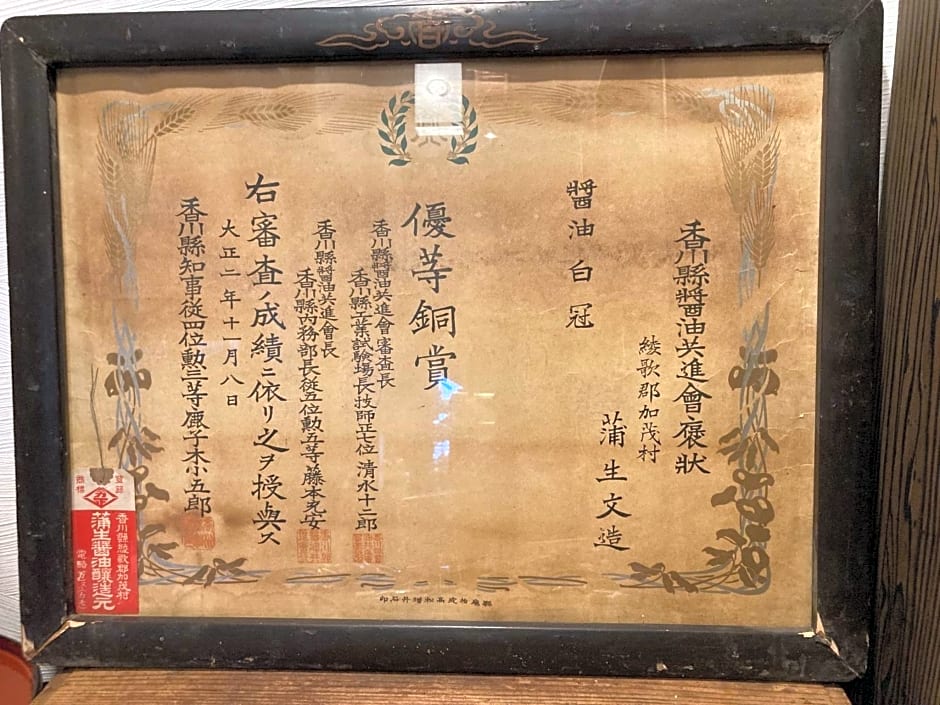 香川縣醤油共進會褒狀
綾歌郡加茂村
蒲生文造
醤油白冠
優等銅賞
香川縣醤油共進會審査長
香川縣工業試驗場長技師正七位清水十二郎
香川縣醤油共進會長
香川縣內務部長從五位勲五等藤本充安
右審査ノ成績ニ依リ之ヲ授與ス
大正二年十一月八日
香川縣知事從四位勲三等鹿子木小五郎
登録
商標
香川縣綾歌郡加茂村
蒲生醤油釀造元